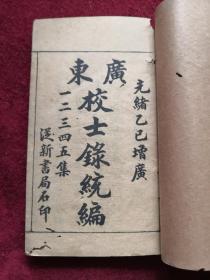 光緒乙巳增廣
廣東
校士錄統編
一二三四五集
從新書局石印